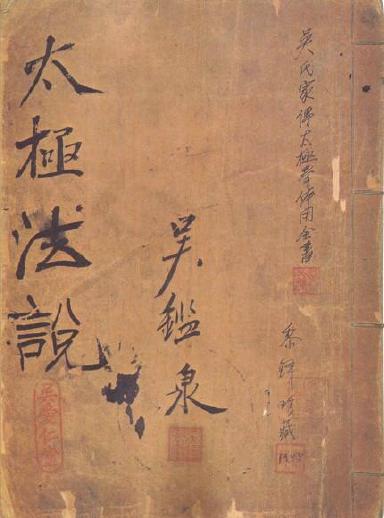 吳氏家傳太極拳体用全書
黎鐸珍藏
吳鑑泉
太極法說